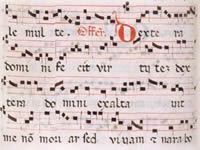 le mul te. Offer. Dexte ra
domi ni fe cit vir tutez dex
tera do mini exalta uit
me nō mori ar sed viuam z narabo